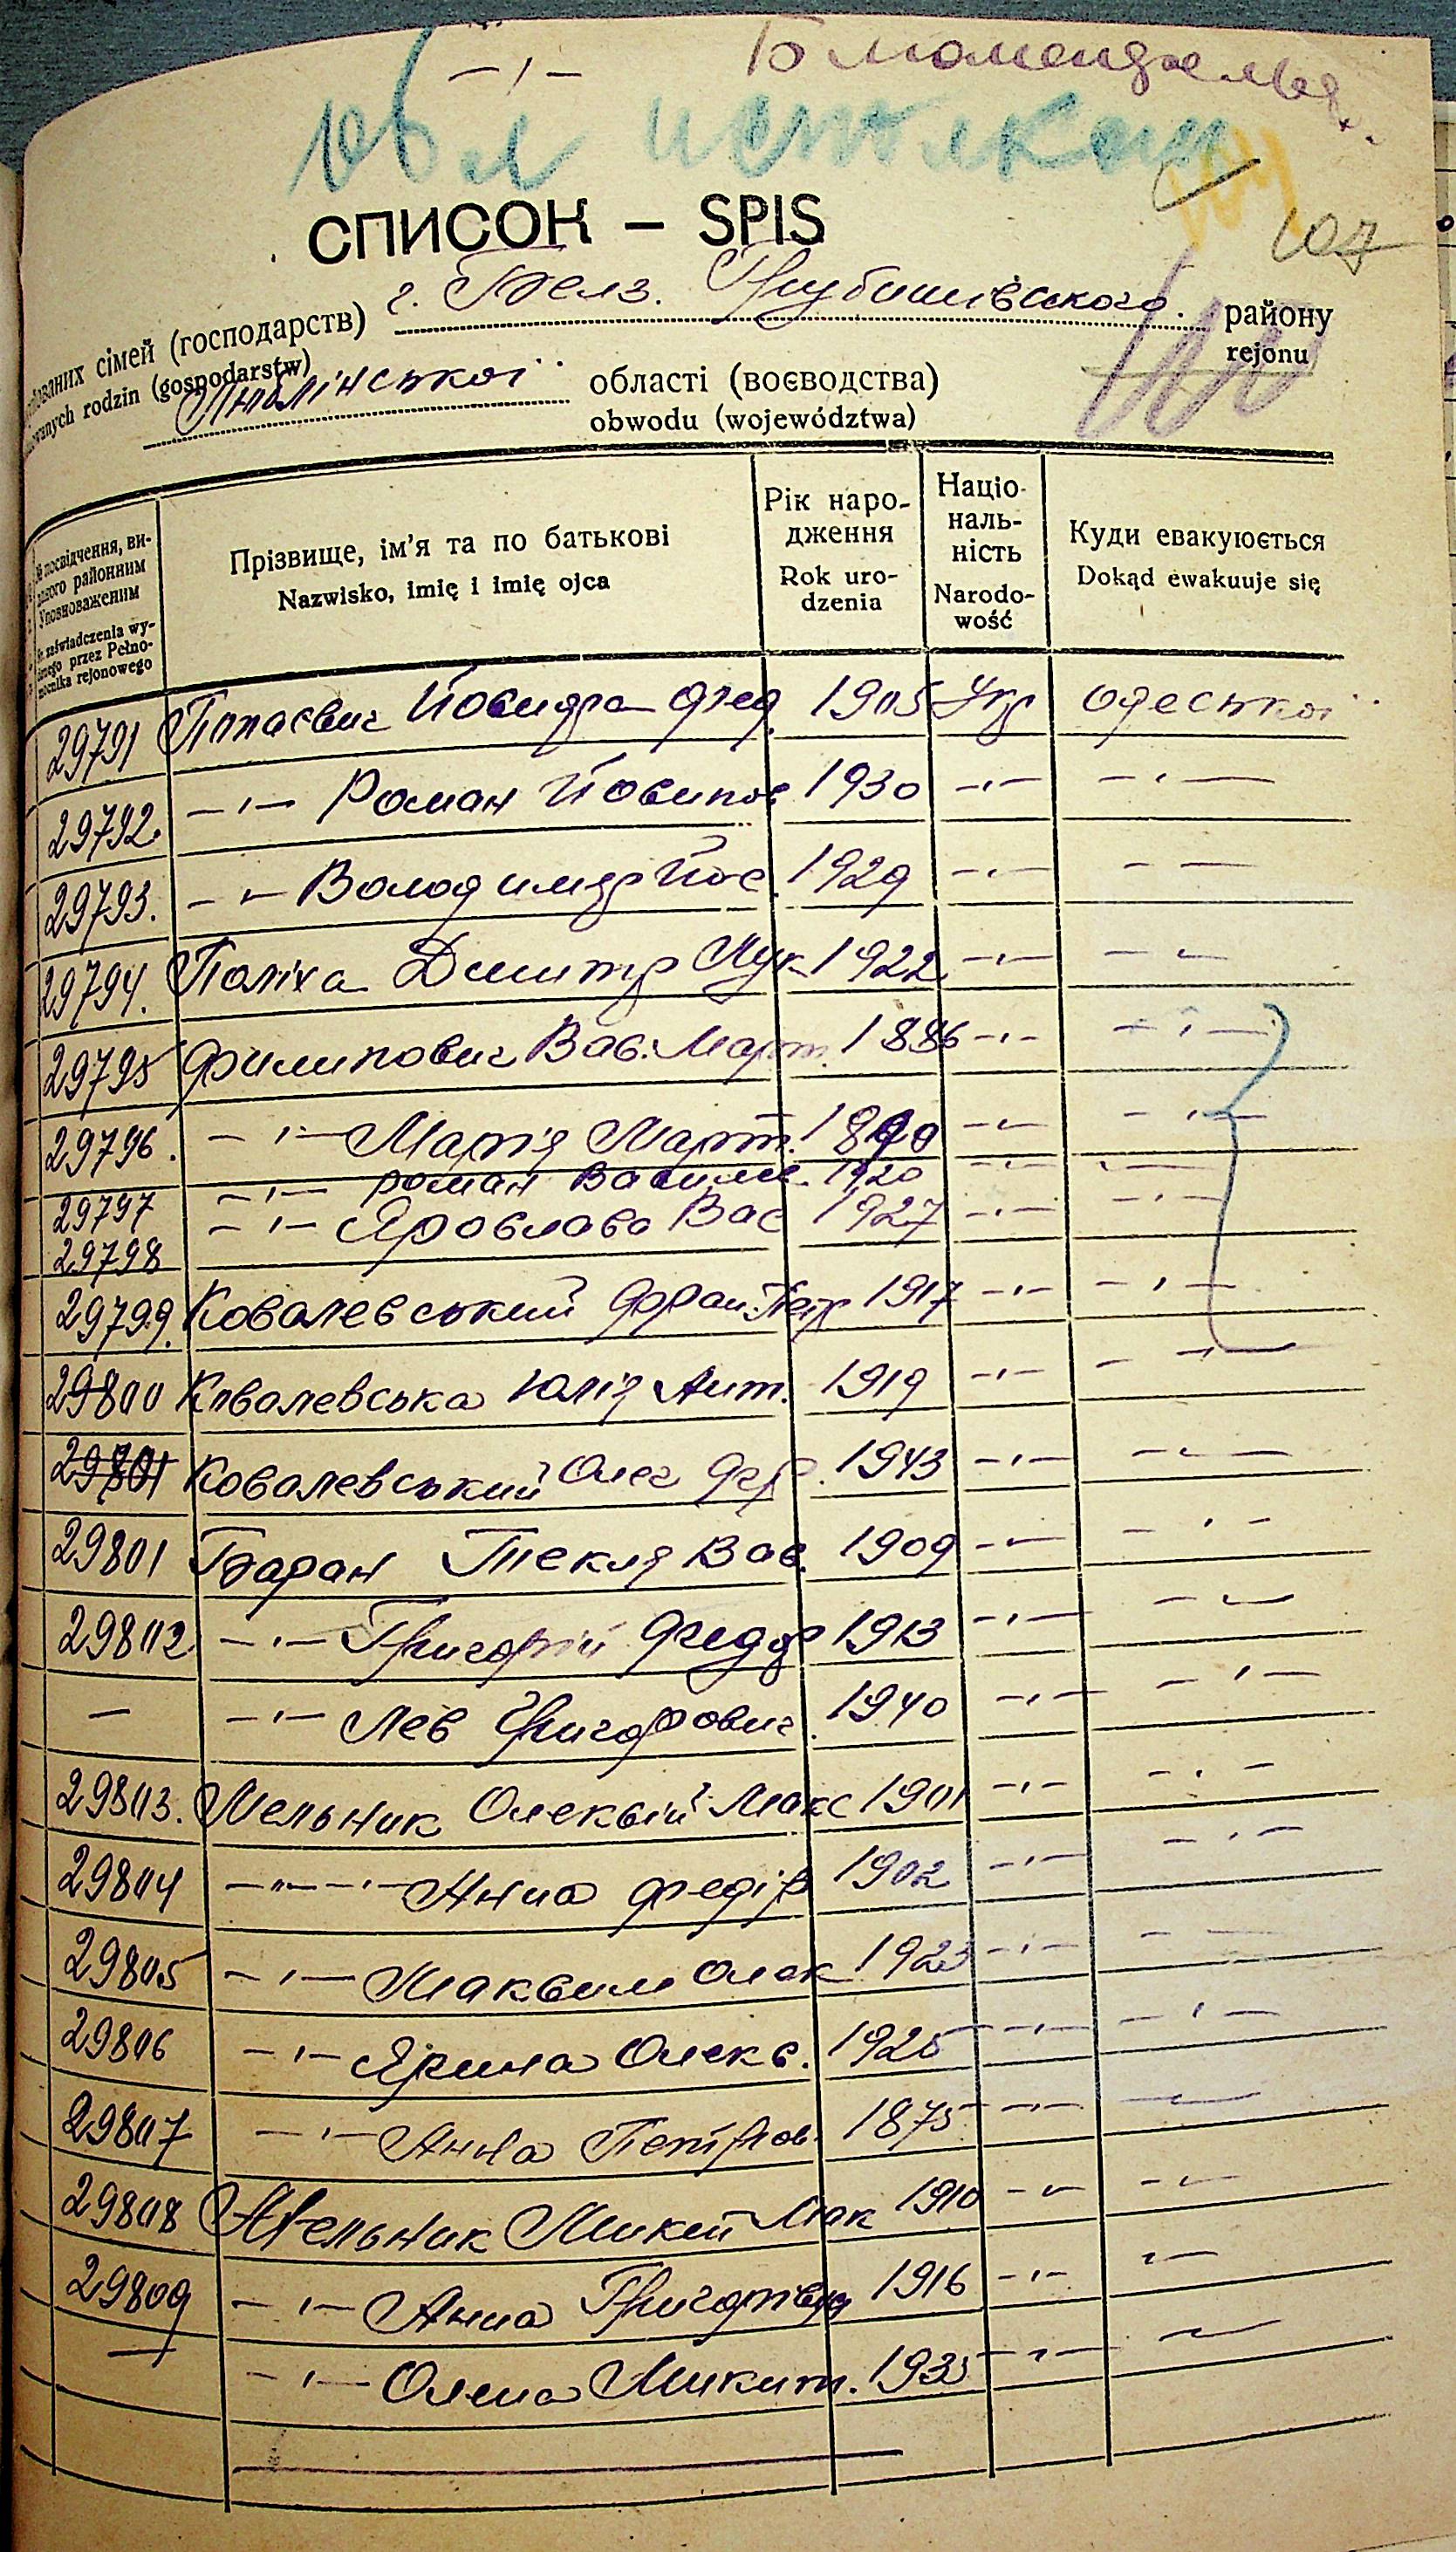 — 1 —
107
СПИСОК — SPIS
сімей (господарств) г. Белз. Грубишівського. району
rodzin (gospodarstw) rejonu
Люблінської області (воєводства)
obwodu (województwa)
№ посвідчення, ви-
даного районним
Уповноваженим
№ zaświadczenia wy-
danego przez Pełno-
mocnika rejonowego
Прізвище, ім'я та по батькові
Nazwisko, imię i imię ojca
Рік наро-
дження
Rok uro-
dzenia
Націо-
наль-
ність
Narodo-
wość
Куди евакуюється
Dokąd ewakuuje się
29791 Фед. 1905 Укр Одеської
29792. —"— Роман Йосипов 1930 —"— —"—
29793. —"— Володимир Йос. 1929 —"— —"—
29794. Поліха Дмитр Лук 1922 —"— —"—
29795 Филипович Вас. Март. 1886 —"— —"—
29796. —"— Марія Март. 1890 —"— —"—
29797 —"— Роман Василев. 1920 —"— —"—
29798 —"— Ярослава Вас 1927 —"— —"—
29799. Ковалевський Петр 1917 —"— —"—
29800 Ковалевська Юлія Ант. 1919 —"— —"—
29801 Ковалевський Олег 1943 —"— —"—
29801 Баран Текля Вас. 1909 —"— —"—
29802 —"— Григорій Федор 1913 —"— —"—
— —"— Лев Григорович. 1940 —"— —"—
29803. Мельник Олексій Макс 1901 —"— —"—
29804 —"— Анна Федір 1902 —"— —"—
29805 —"— Максим Олек 1923 —"— —"—
29806 —"— Ярина Олекс. 1925 —"— —"—
29807 —"— Анна Петров. 1875 —"— —"—
29808 Мельник Микит Мак 1910 —"— —"—
29809 —"— Анна 1916 —"— —"—
— —"— Олена Микит. 1935 —"— —"—